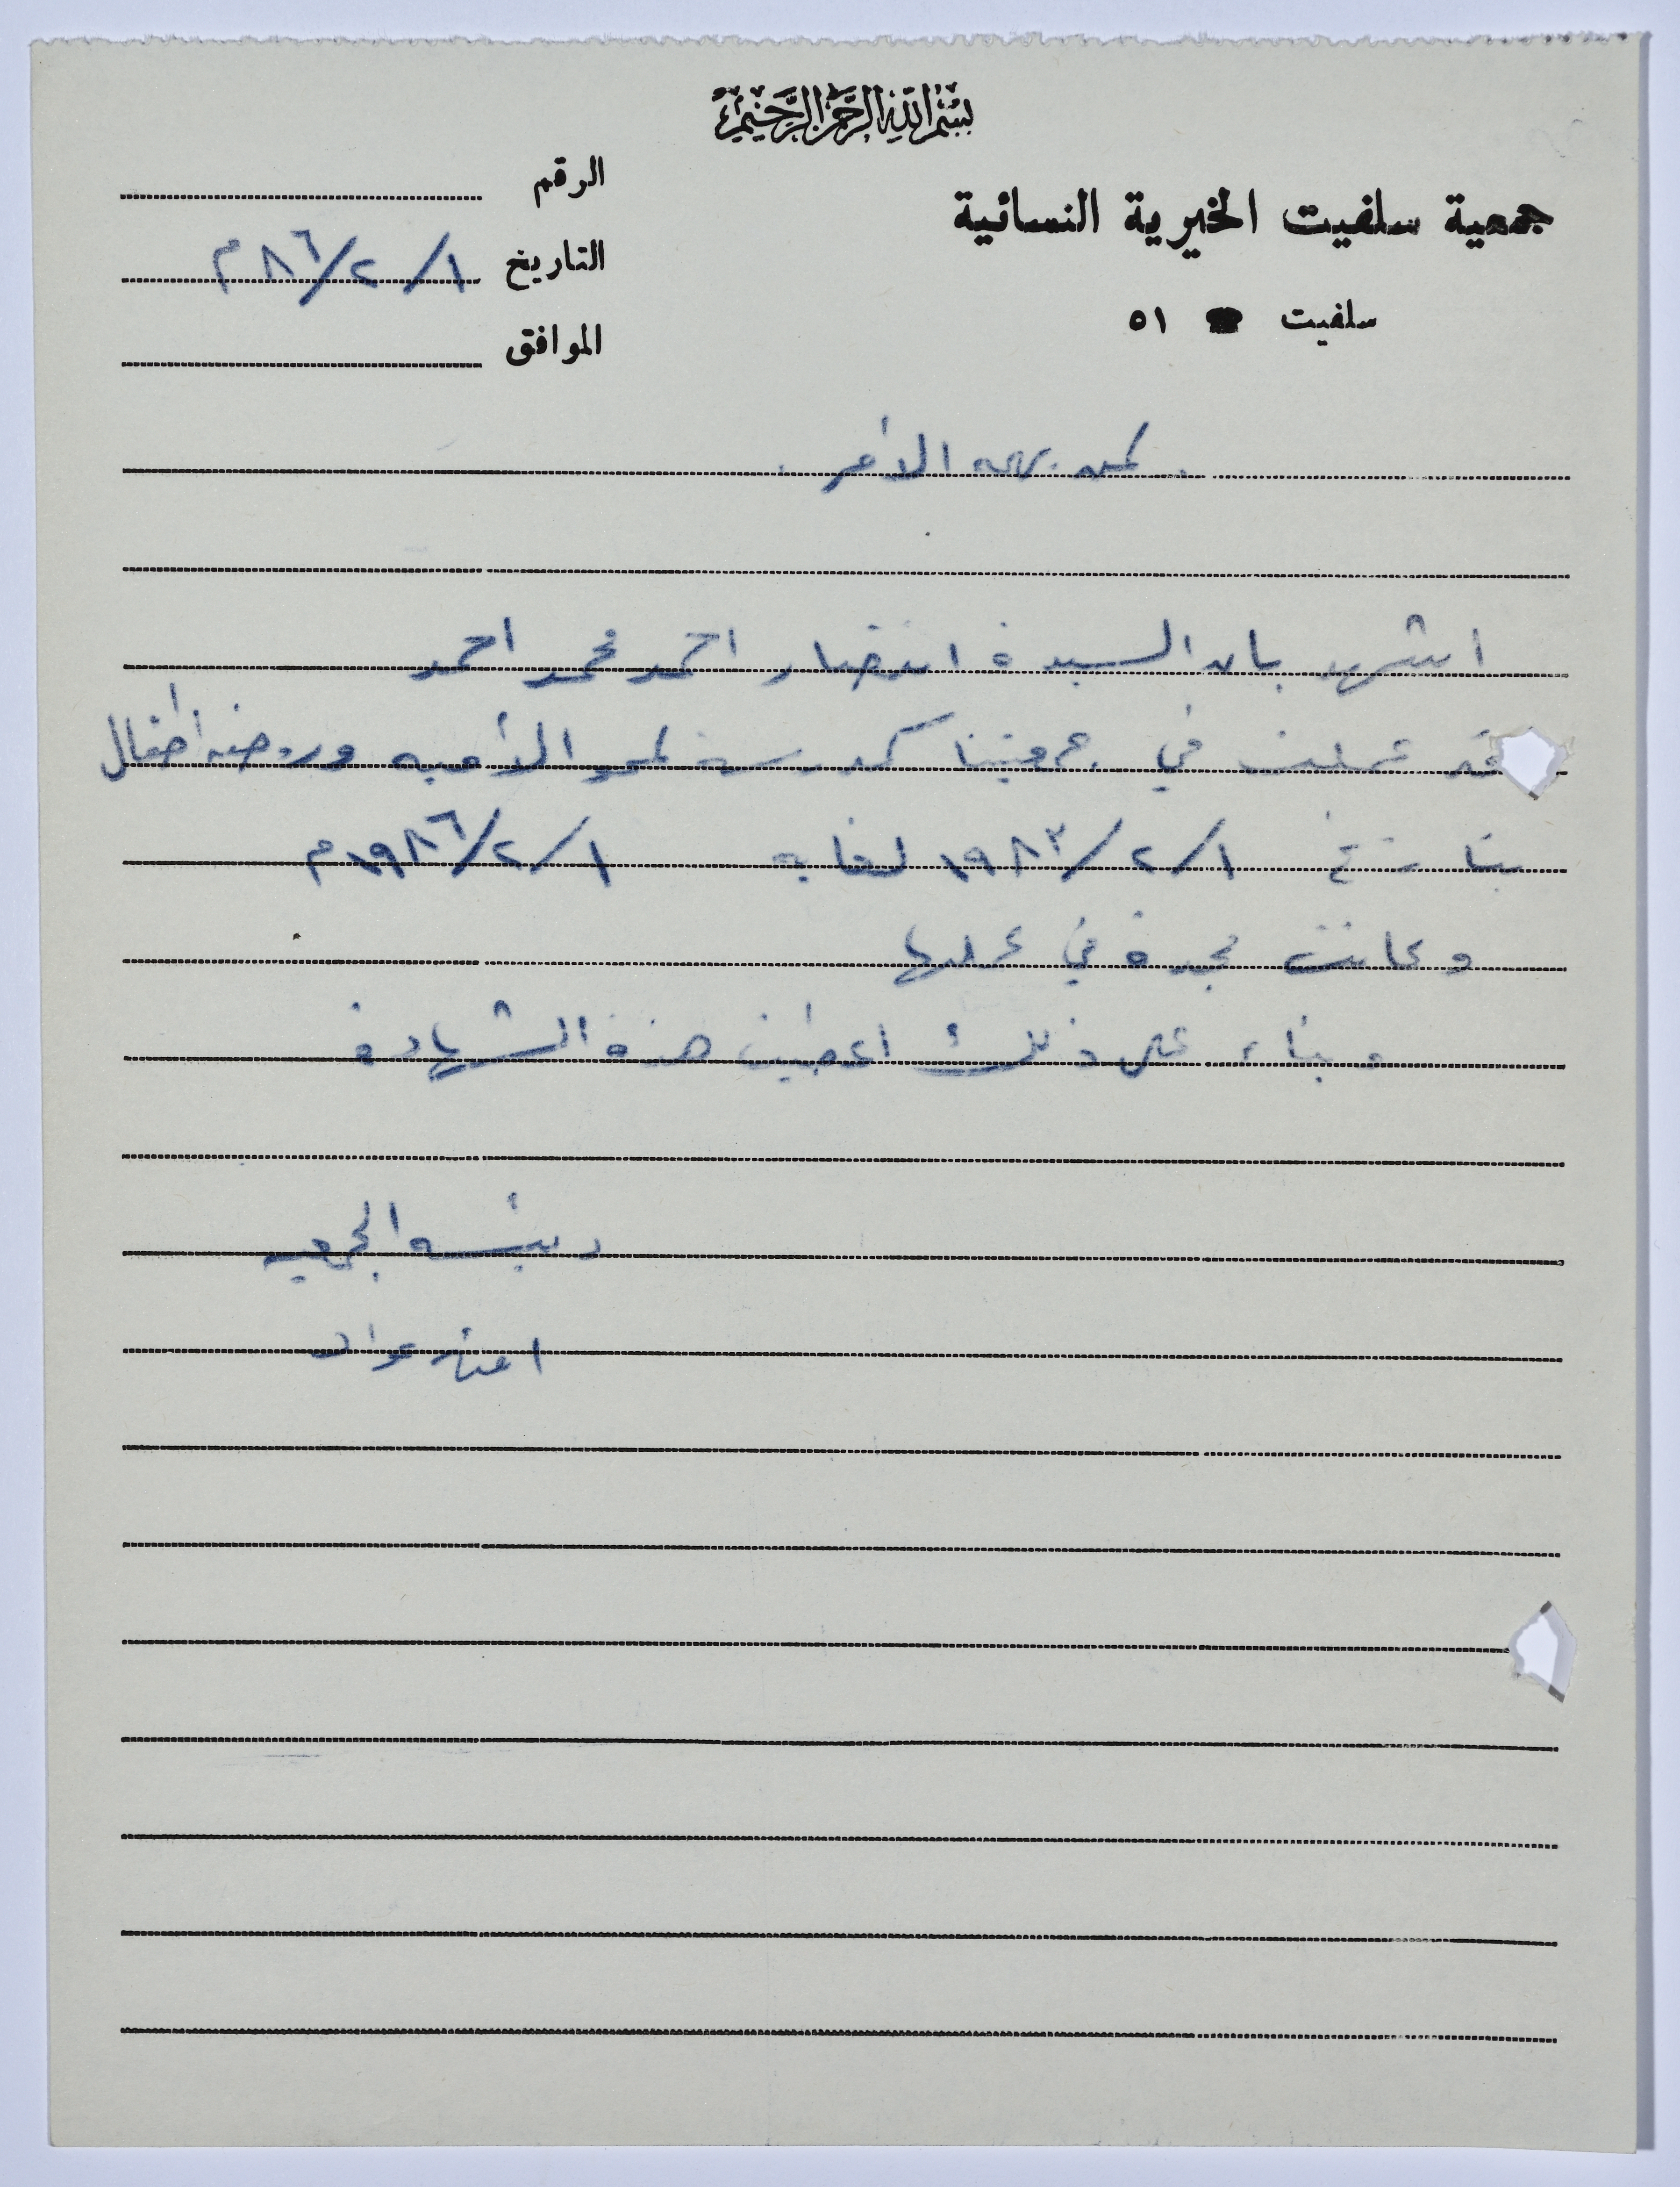 بسم الله الرحمن الرحيم
جمعية سلفيت الخيرية النسائية
سلفيت ☎ ٥١
الرقم
التاريخ ١/٢/٨٦م
الموافق
لمن يهمه الأمر
اشهد بان السيدة انتصار احمد محمد احمد
قد عملت في جمعيتنا كمدرسة لمحو الأميه وروضه أطفال
بتاريخ ١/٢/١٩٨٣ لغايه ١/٢/١٩٨٦م
وكانت مجدة في عملها
وبناء على ذلك أعطيت هذة الشهادة
رئيسه الجمعيه
اعتدال عواد